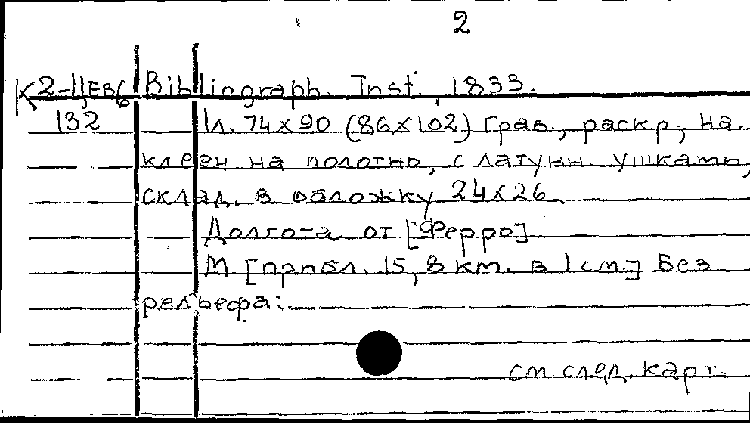 2
К2-II,Ев6 Bibliograph. Inst., 1833.
132 1л. 74x90 (86x102) Грав., раскр., на-
клеен на полотно, с латунн. ушками,
склад. в обложку 24x26.
Долгота от [Ферро]
М [прибл. 15,8 км. в 1 см.] Без
рельефа.
см след. карт.